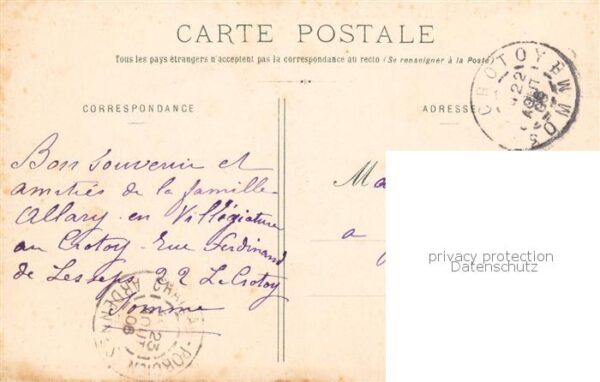 CARTE POSTALE
Tous les pays étrangers n'acceptent pas la correspondance au recto (Se renseigner à la Poste)
CORRESPONDANCE
ADRESSE
CROTOY SOMME
22
AOUT
08
Bon souvenir et
amitiés de la famille
Allary en Villégiature
au Crotoy - Rue Ferdinand
de Lesseps 22 Le Crotoy
Somme
Ma
a
privacy protection
Datenschutz
PORCIEN
ARDENNES
23
AOUT
08